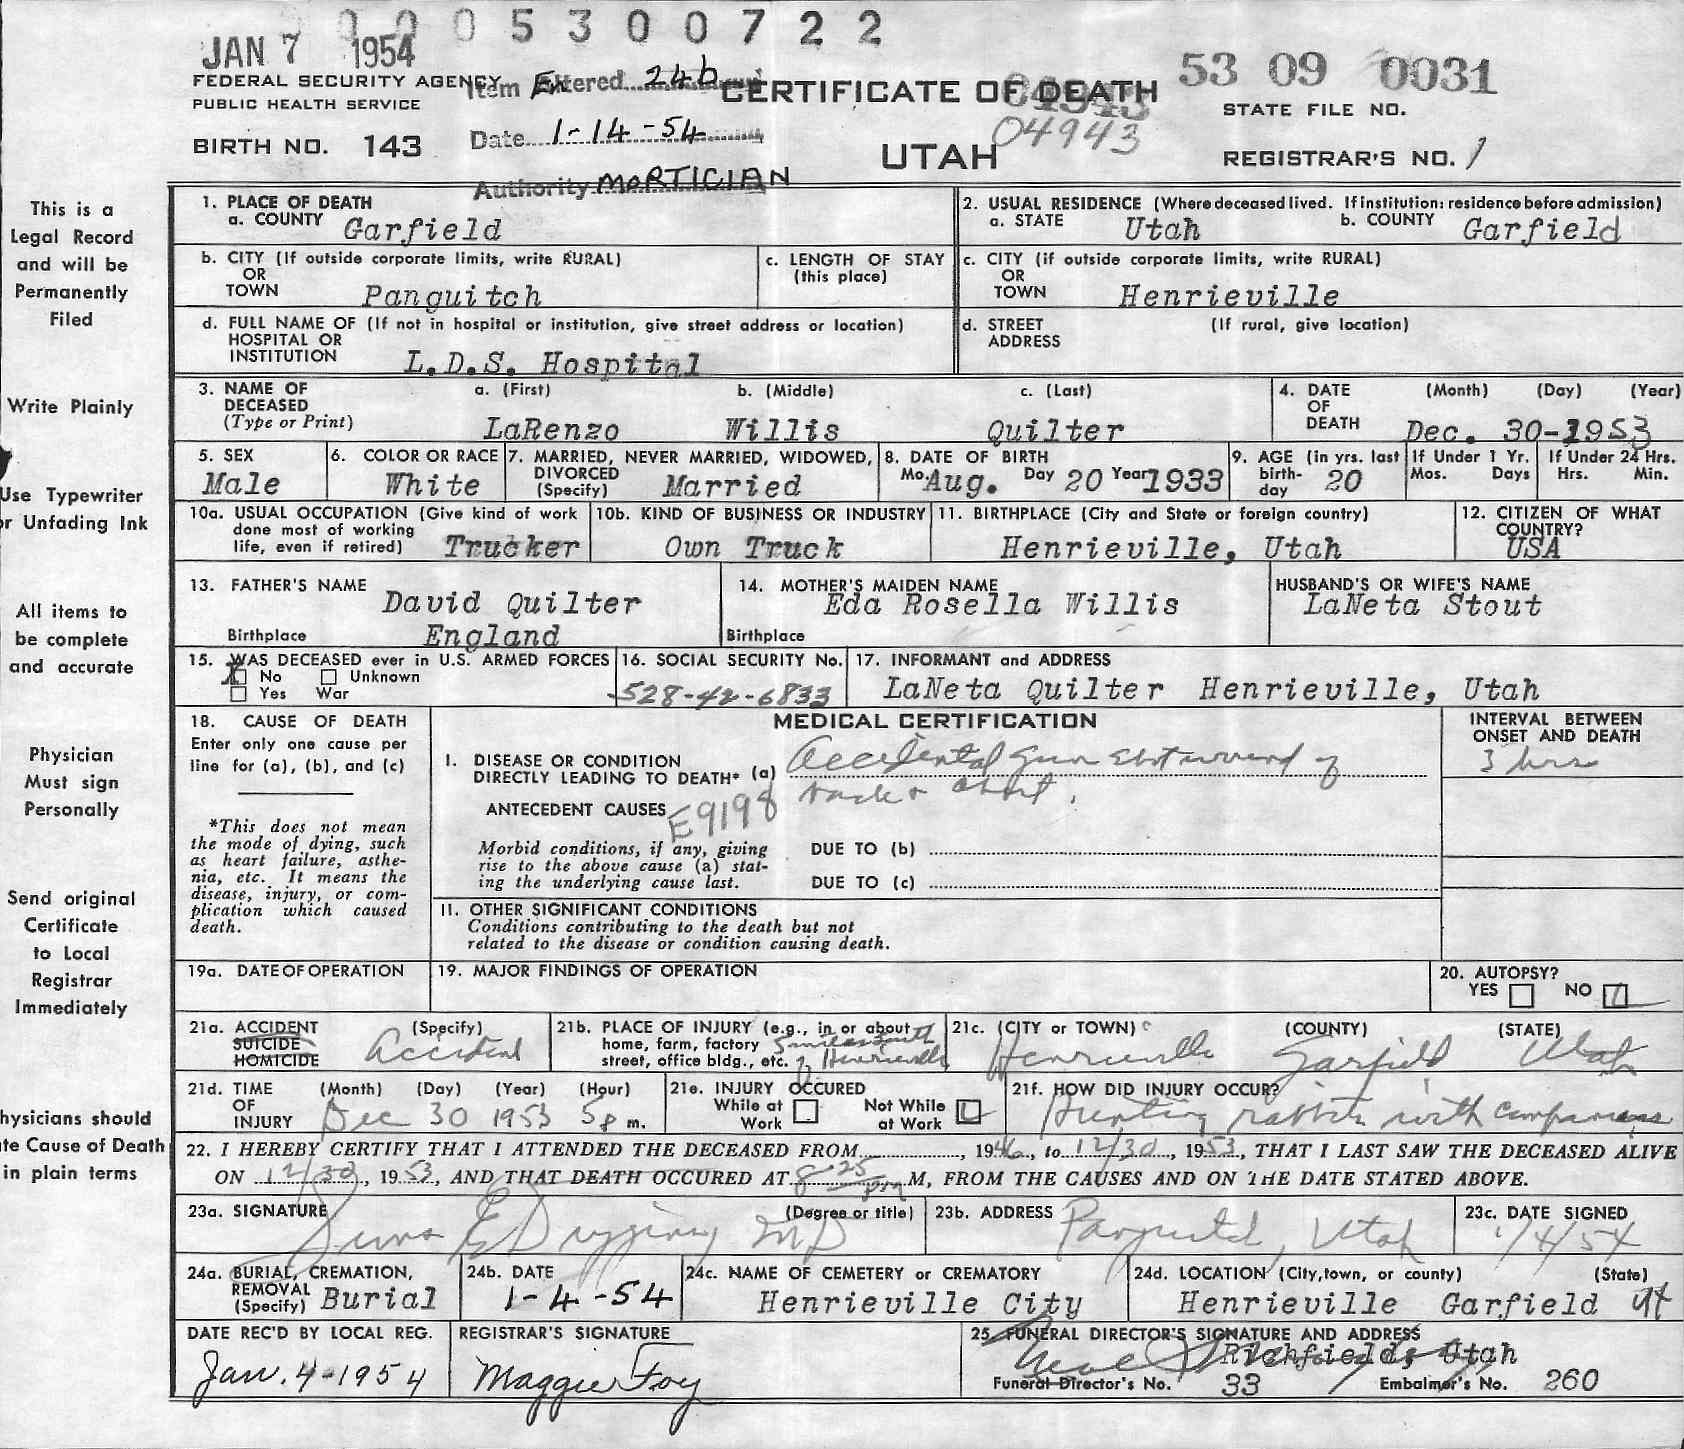 0 0 0 5 3 0 0 7 2 2
JAN 7 1954
53 09 0031
FEDERAL SECURITY AGENCY
PUBLIC HEALTH SERVICE
Item Entered 24b
CERTIFICATE OF DEATH
STATE FILE NO.
BIRTH NO. 143
Date 1-14-54
04943
UTAH
REGISTRAR'S NO. 1
Authority MORTICIAN
This is a
Legal Record
and will be
Permanently
Filed
Write Plainly
Use Typewriter
or Unfading Ink
All items to
be complete
and accurate
Physician
Must sign
Personally
Send original
Certificate
to Local
Registrar
Immediately
hysicians should
te Cause of Death
in plain terms
1. PLACE OF DEATH
a. COUNTY Garfield
2. USUAL RESIDENCE (Where deceased lived. If institution: residence before admission)
a. STATE Utah b. COUNTY Garfield
b. CITY (If outside corporate limits, write RURAL)
OR
TOWN Panguitch
c. LENGTH OF STAY
(this place)
c. CITY (if outside corporate limits, write RURAL)
OR
TOWN Henrieville
d. FULL NAME OF (If not in hospital or institution, give street address or location)
HOSPITAL OR
INSTITUTION L.D.S. Hospital
d. STREET (If rural, give location)
ADDRESS
3. NAME OF a. (First) b. (Middle) c. (Last)
DECEASED
(Type or Print) LaRenzo Willis Quilter
4. DATE (Month) (Day) (Year)
OF
DEATH Dec. 30-1953
5. SEX
Male
6. COLOR OR RACE
White
7. MARRIED, NEVER MARRIED, WIDOWED,
DIVORCED
(Specify) Married
8. DATE OF BIRTH
Mo. Aug. Day 20 Year 1933
9. AGE (in yrs. last
birth-
day 20
If Under 1 Yr.
Mos. Days
If Under 24 Hrs.
Hrs. Min.
10a. USUAL OCCUPATION (Give kind of work
done most of working
life, even if retired) Trucker
10b. KIND OF BUSINESS OR INDUSTRY
Own Truck
11. BIRTHPLACE (City and State or foreign country)
Henrieville, Utah
12. CITIZEN OF WHAT
COUNTRY?
USA
13. FATHER'S NAME
David Quilter
Birthplace England
14. MOTHER'S MAIDEN NAME
Eda Rosella Willis
Birthplace
HUSBAND'S OR WIFE'S NAME
LaNeta Stout
15. WAS DECEASED ever in U.S. ARMED FORCES
X No Unknown
Yes War
16. SOCIAL SECURITY No.
528-42-6833
17. INFORMANT and ADDRESS
LaNeta Quilter Henrieville, Utah
18. CAUSE OF DEATH
Enter only one cause per
line for (a), (b), and (c)
*This does not mean
the mode of dying, such
as heart failure, asthe-
nia, etc. It means the
disease, injury, or com-
plication which caused
death.
MEDICAL CERTIFICATION
I. DISEASE OR CONDITION
DIRECTLY LEADING TO DEATH* (a) Accidental gun shot wound of
chest.
ANTECEDENT CAUSES E9198
Morbid conditions, if any, giving
rise to the above cause (a) stat-
ing the underlying cause last.
DUE TO (b)
DUE TO (c)
II. OTHER SIGNIFICANT CONDITIONS
Conditions contributing to the death but not
related to the disease or condition causing death.
INTERVAL BETWEEN
ONSET AND DEATH
3 hrs
19a. DATE OF OPERATION
19. MAJOR FINDINGS OF OPERATION
20. AUTOPSY?
YES NO
21a. ACCIDENT (Specify)
SUICIDE
HOMICIDE Accident
21b. PLACE OF INJURY (e.g., in or about
home, farm, factory
street, office bldg., etc. 5 miles South
of Henrieville
21c. (CITY or TOWN) (COUNTY) (STATE)
Henrieville Garfield Utah
21d. TIME (Month) (Day) (Year) (Hour)
OF
INJURY Dec 30 1953 5 p m.
21e. INJURY OCCURED
While at Work Not While at Work
21f. HOW DID INJURY OCCUR?
Hunting rabbits with companions
22. I HEREBY CERTIFY THAT I ATTENDED THE DECEASED FROM, 1946, to 12/30, 1953, THAT I LAST SAW THE DECEASED ALIVE
ON 12/30, 1953, AND THAT DEATH OCCURED AT 8 25 pm M, FROM THE CAUSES AND ON THE DATE STATED ABOVE.
23a. SIGNATURE (Degree or title)
Duggins MD
23b. ADDRESS
Panguitch, Utah
23c. DATE SIGNED
1/4/54
24a. BURIAL, CREMATION,
REMOVAL
(Specify) Burial
24b. DATE
1-4-54
24c. NAME OF CEMETERY or CREMATORY
Henrieville City
24d. LOCATION (City, town, or county) (State)
Henrieville Garfield Ut
DATE REC'D BY LOCAL REG.
Jan. 4-1954
REGISTRAR'S SIGNATURE
Maggie Foy
25. FUNERAL DIRECTOR'S SIGNATURE AND ADDRESS
Richfield, Utah
Funeral Director's No. 33 Embalmer's No. 260